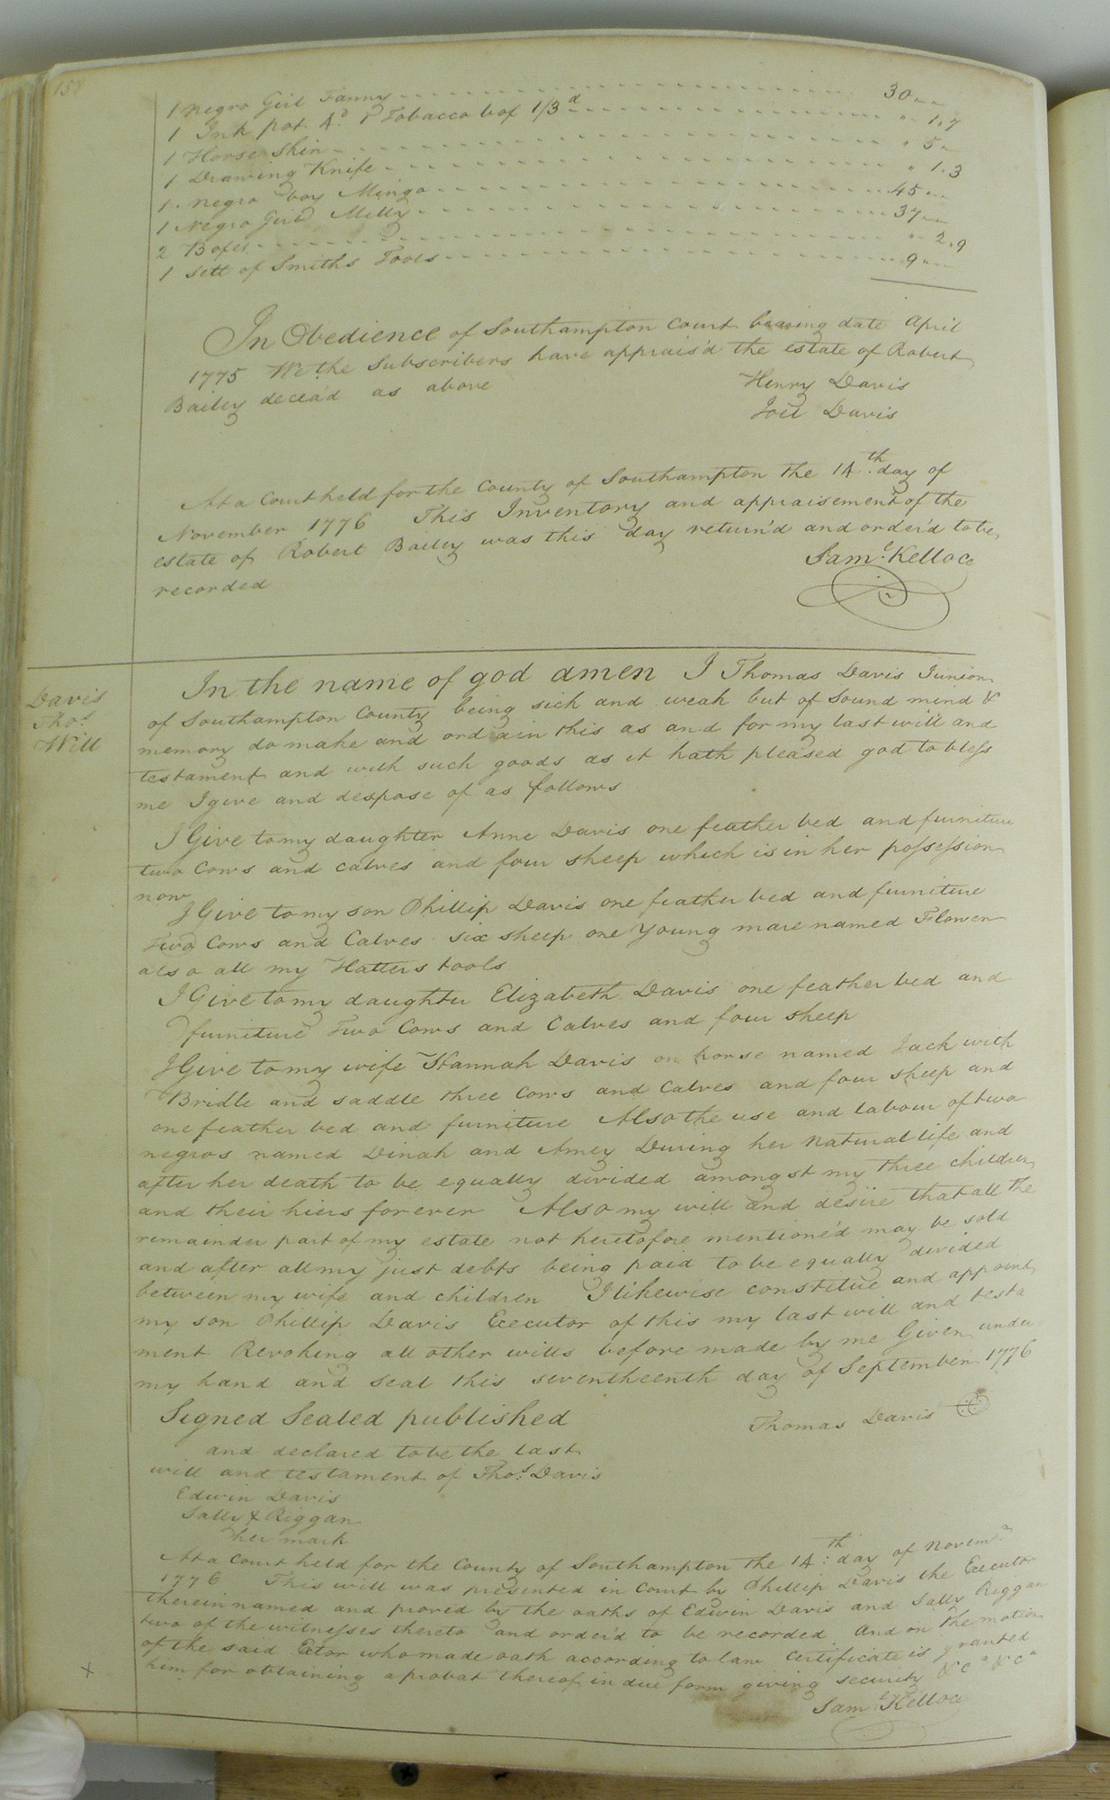 158
1 negro Girl Fanny 30
1 Ink pot 4d 1 Tobacco box 1/3d 1.7
1 Horse Skin 5
1 Drawing Knife 1.3
1 negro boy Mingo 45
1 Negro Girl Milly 37
2 Boxes 2.9
1 sett of Smiths Tools 9
In Obedience of Southampton Court bearing date April
1775 We the Subscribers have apprais'd the estate of Robert
Bailey decea'd as above
Henry Davis
Joel Davis
At a Court held for the County of Southampton the 14th. day of
November 1776 This Inventory and appraisement of the
estate of Robert Bailey was this day return'd and order'd to be
recorded
Saml. Kelloco
Davis
Thos.
Will
In the name of god amen I Thomas Davis Junior
of Southampton County being sick and weak but of Sound mind &
memory do make and ordain this as and for my last will and
testament and with such goods as it hath pleased god to bless
me I give and despose of as follows
I Give to my daughter Anne Davis one feather bed and furniture
two Cows and calves and four sheep which is in her possession
now
I Give to my son Phillip Davis one feather bed and furniture
Two Cows and Calves six sheep one Young mare named Flower
also all my Hatters tools
I Give to my daughter Elizabeth Davis one feather bed and
furniture Two Cows and Calves and four sheep
I Give to my wife Hannah Davis on horse named Jack with
Bridle and saddle three Cows and Calves and four sheep and
one feather bed and furniture Also the use and labour of two
negros named Dinah and Amey During her natural life and
after her death to be equally divided amongst my three children
and their hiers for ever Also my will and desire that all the
remainder part of my estate not heretofore mentione'd may be sold
and after all my just debts being paid to be equally divided
between my wife and children I likewise constitue and appoint
my son Phillip Davis Executor of this my last will and testa
ment Revoking all other wills before made by me Given under
my hand and seal this seventheenth day of September 1776
Signed Sealed published
Thomas Davis
and declared to be the last
will and testament of Thos. Davis
Edwin Davis
Sally X Riggan
her mark
At a Court held for the County of Southampton the 14th: day of Novemr
1776 This will was presented in Court by Phillip Davis the Executor
therein named and proved by the oaths of Edwin Davis and Sally Riggan
two of the witnesses thereto and order'd to be recorded And on the motion
of the said Extor who made oath according to law Certificate is granted
him for obtaining a probat thereof in due form giving security &ca &ca
Saml. Kelloco
x